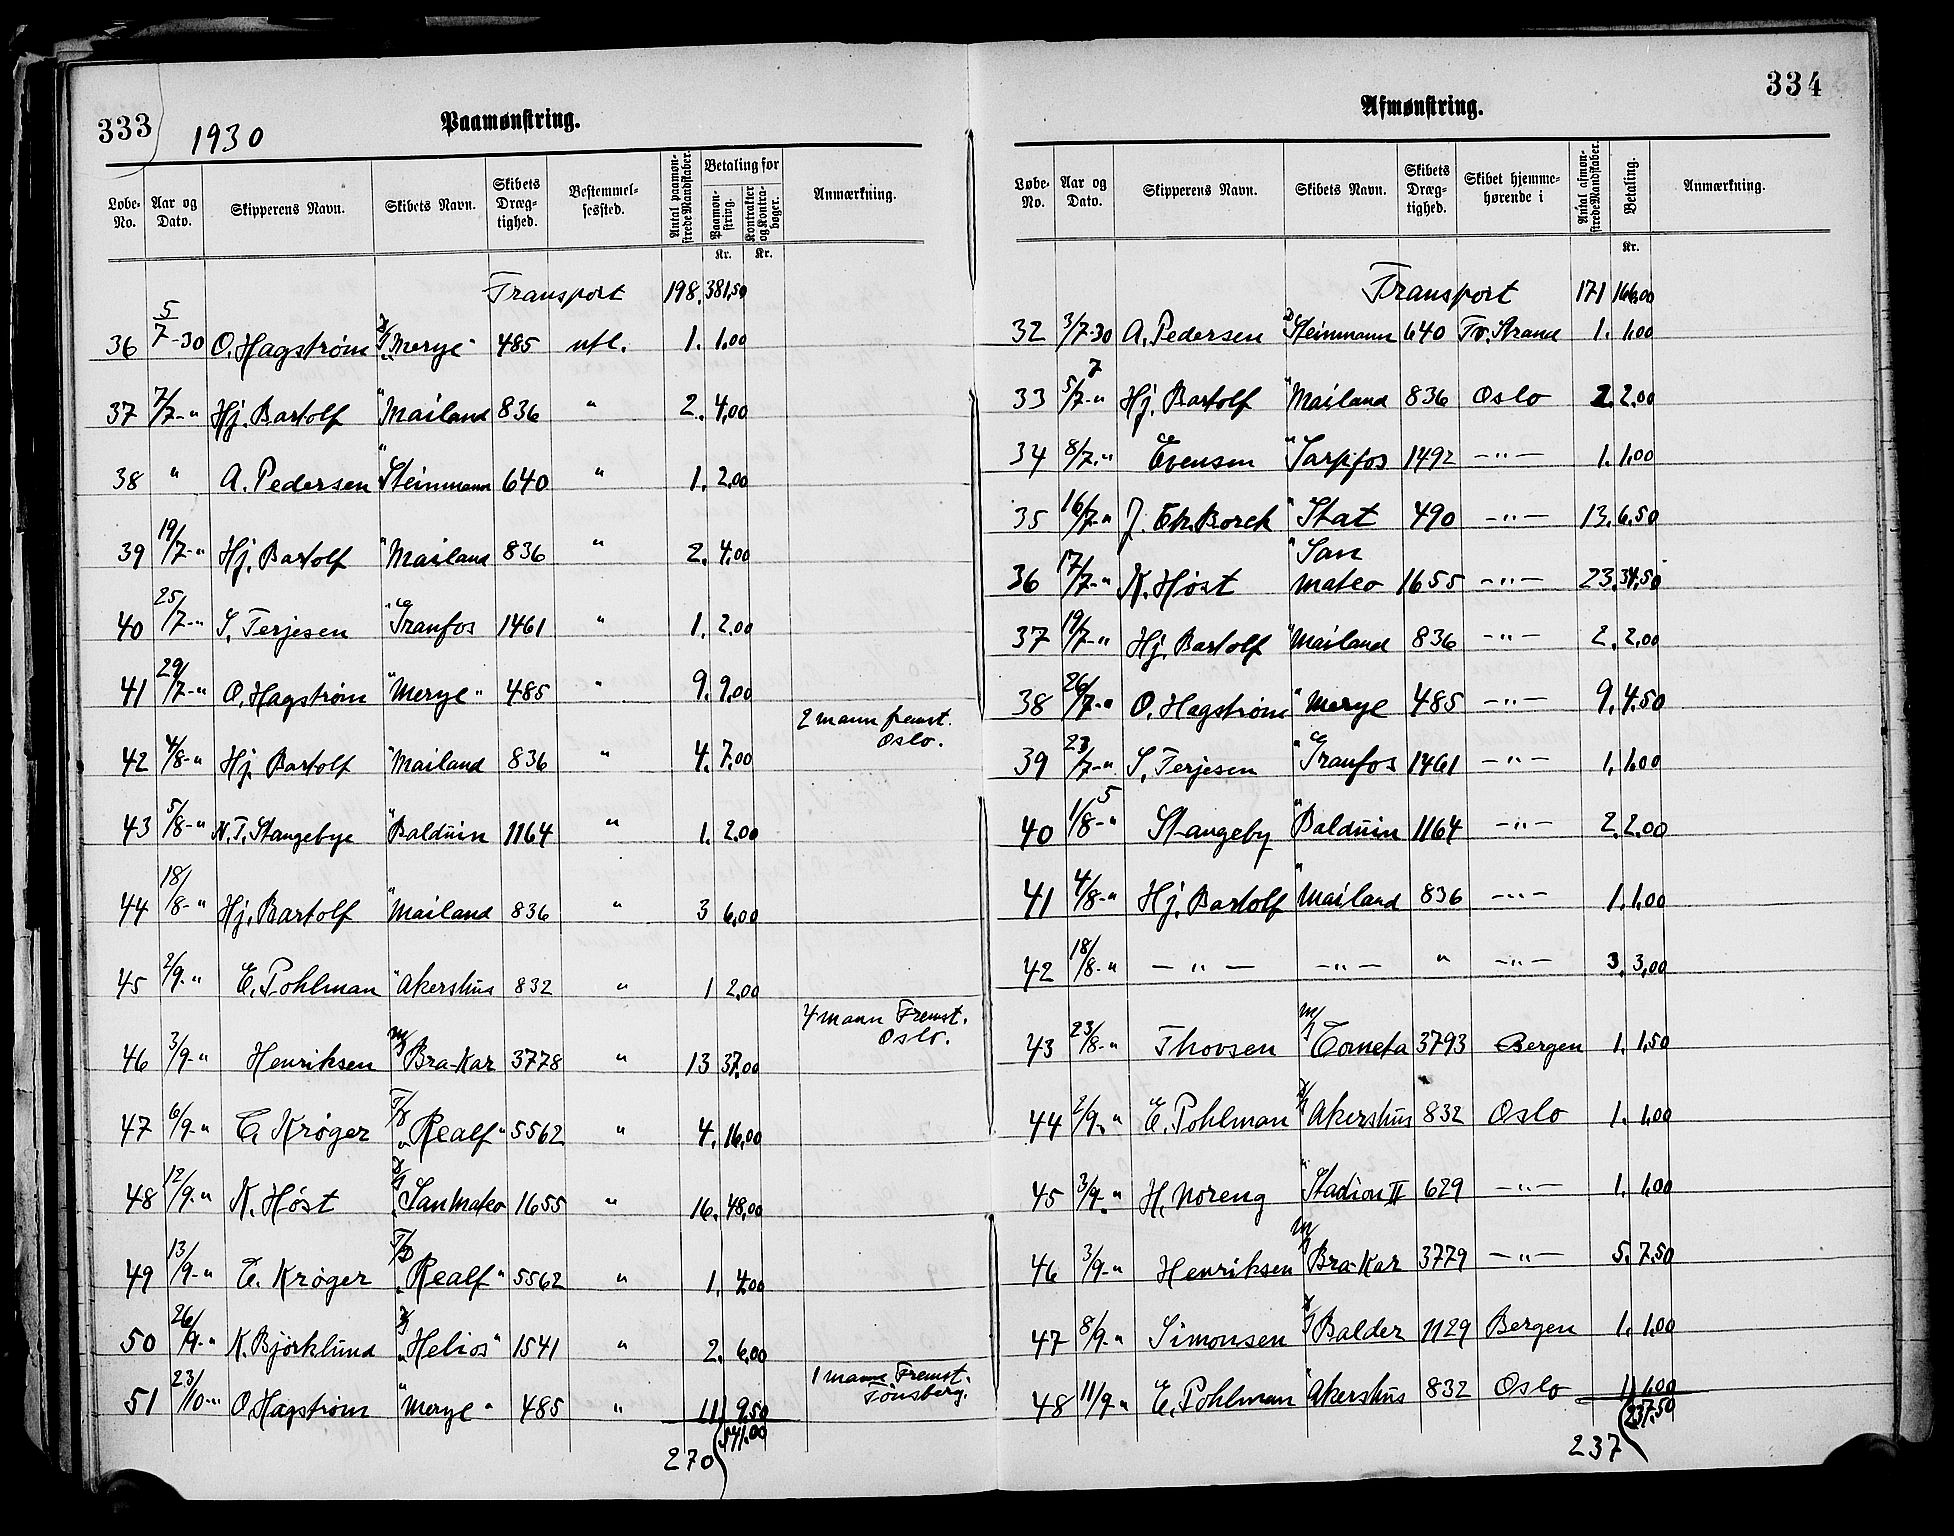 333
1930
Paamønstring.
Løbe-No. Aar og Dato. Skipperens Navn. Skibets Navn. Skibets Dræg-tighed. Bestemmel-sessted. Antal paamøn-strede Mandskaber. Betaling for Paamøn-string. Kontrakter og Kontra-bøger. Anmærkning.
Kr. Kr.
Transport 198. 381,50
36 5/7-30 O. Hagstrøm D/S "Merye" 485 utl. 1. 1.00
37 7/7-" Hj. Bartolf " Mailand 836 " 2. 4,00
38 " A. Pedersen " Steinmann 640 " 1. 2,00
39 19/7-" Hj. Bartolf " Mailand 836 " 2. 4,00
40 25/7-" S. Terjesen " Granfos 1461 " 1. 2.00
41 29/7-" O. Hagstrøm " Merye " 485 " 9. 9,00
42 4/8-" Hj. Bartolf " Mailand 836 " 4. 7,00 2 mann fremst. Oslo.
43 5/8-" N.T. Stangebye " Balduin 1164 " 1. 2.00
44 18/8-" Hj. Bartolf " Mailand 836 " 3 6,00
45 2/9-" E. Pohlman " Akershus 832 " 1 2.00
46 3/9-" Henriksen M/S Bra-Kar 3778 " 13 37.00 4 mann Fremst. Oslo.
47 6/9-" C. Krøger T/S "Realf" 5562 " 4. 16,00
48 12/9-" K. Høst D/S "San Mateo 1655 " 16. 48,00
49 13/9-" C. Krøger T/S "Realf" 5562 " 1. 4.00
50 26/9-" K. Björklund D/S "Helios" 1541 " 2. 6,00
51 23/10-" O. Hagstrøm " Merye " 485 " 11 9,50 1 mann Fremst. Tönsberg.
270 541.00
334
Afmønstring.
Løbe-No. Aar og Dato. Skipperens Navn. Skibets Navn. Skibets Dræg-tighed. Skibet hjemme-hørende i Antal afmøn-strede Mandskaber. Betaling. Anmærkning.
Kr.
Transport 171 166,00
32 3/7-30 A. Pedersen D/S Steinmann 640 Tv. Strand 1. 1.00
33 5/7-" 7 Hj. Bartolf " Mailand 836 Oslo 2. 2.00
34 8/7-" Evensen " Sarpfos 1492 -"- 1. 1.00
35 16/7-" J. Chr. Borch " Stat 490 -"- 13. 6,50
36 17/7-" K. Høst " San Mateo 1655 -"- 23. 34,50
37 19/7-" Hj. Bartolf " Mailand 836 -"- 2. 2.00
38 26/7-" O. Hagstrøm " Merye 485 -"- 9. 4.50
39 23/7-" S. Terjesen " Granfos 1461 -"- 1. 1.00
40 1/8-" 5 Stangeby " Balduin 1164 -"- 2. 2.00
41 4/8-" Hj. Bartolf " Mailand 836 -"- 1. 1,00
42 18/8-" -"- -"- " -"- 3. 3,00
43 23/8-" Thovsen M/S Cometa 3793 Bergen 1. 1,50
44 2/9-" E. Pohlman D/S Akershus 832 Oslo 1. 1.00
45 3/9-" H. Noreng " Stadion II 629 -"- 1. 1,00
46 3/9-" Henriksen M/S Bra-Kar 3779 -"- 5. 7.50
47 8/9-" Simonsen D/S Balder 1129 Bergen 1. 1.00
48 11/9-" E. Pohlman " Akershus 832 Oslo 1 1,00
237 237.50